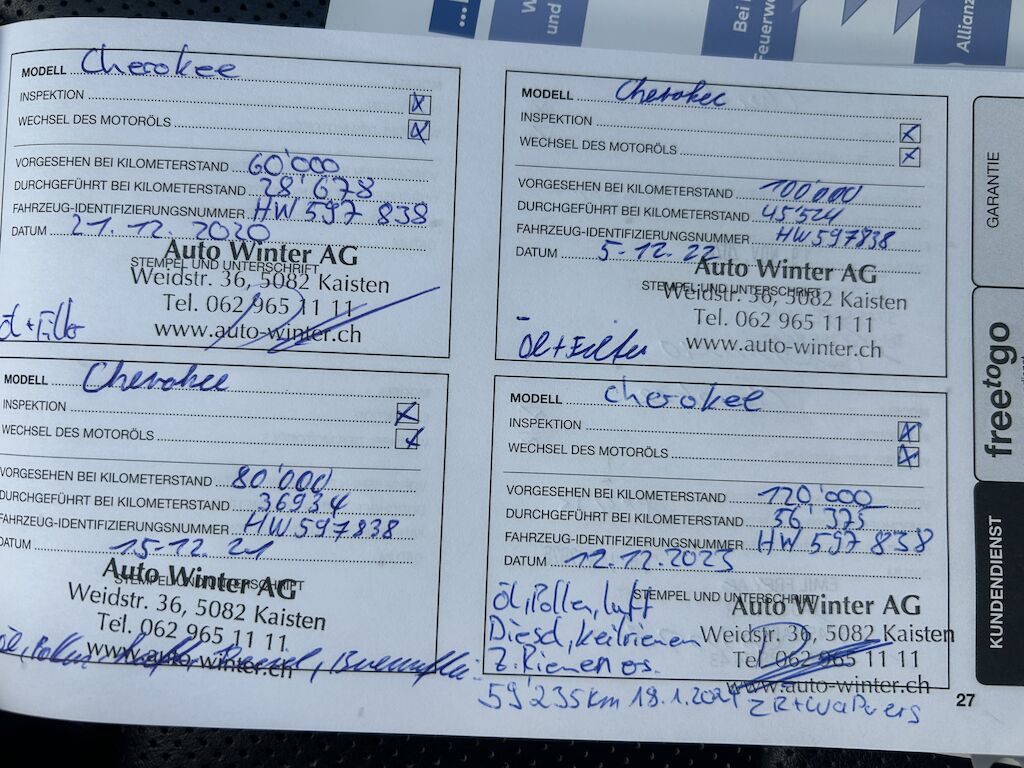 Bei
Feuerwe
Allianz
MODELL Cherokee
INSPEKTION X
WECHSEL DES MOTORÖLS X
VORGESEHEN BEI KILOMETERSTAND 60'000
DURCHGEFÜHRT BEI KILOMETERSTAND 28'678
FAHRZEUG-IDENTIFIZIERUNGSNUMMER HW 597 838
DATUM 21.12.2020
STEMPEL UND UNTERSCHRIFT
Auto Winter AG
Weidstr. 36, 5082 Kaisten
Tel. 062 965 11 11
www.auto-winter.ch
Öl + Filter
MODELL Cherokee
INSPEKTION X
WECHSEL DES MOTORÖLS X
VORGESEHEN BEI KILOMETERSTAND 100'000
DURCHGEFÜHRT BEI KILOMETERSTAND 45'524
FAHRZEUG-IDENTIFIZIERUNGSNUMMER HW597838
DATUM 5-12.22
STEMPEL UND UNTERSCHRIFT
Auto Winter AG
Weidstr. 36, 5082 Kaisten
Tel. 062 965 11 11
www.auto-winter.ch
Öl + Filter
MODELL Cherokee
INSPEKTION X
WECHSEL DES MOTORÖLS X
VORGESEHEN BEI KILOMETERSTAND 80'000
DURCHGEFÜHRT BEI KILOMETERSTAND 36934
FAHRZEUG-IDENTIFIZIERUNGSNUMMER HW597838
DATUM 15-12.21
STEMPEL UND UNTERSCHRIFT
Auto Winter AG
Weidstr. 36, 5082 Kaisten
Tel. 062 965 11 11
www.auto-winter.ch
Öl, Pollen, Diesel,
MODELL Cherokee
INSPEKTION X
WECHSEL DES MOTORÖLS X
VORGESEHEN BEI KILOMETERSTAND 120'000
DURCHGEFÜHRT BEI KILOMETERSTAND 56'375
FAHRZEUG-IDENTIFIZIERUNGSNUMMER HW 597 838
DATUM 12.12.2023
STEMPEL UND UNTERSCHRIFT
Auto Winter AG
Weidstr. 36, 5082 Kaisten
Tel. 062 965 11 11
www.auto-winter.ch
Öl, Pollen, Luft
Diesel, Keilriemen
Z. Riemen os.
59'235 km 18.1.2024 ZR + WaPu ers
27
GARANTIE
freetogo
KUNDENDIENST